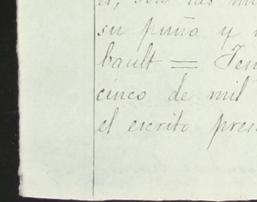 su puño y
bault = Ten
cinco de mil
el escrito pres